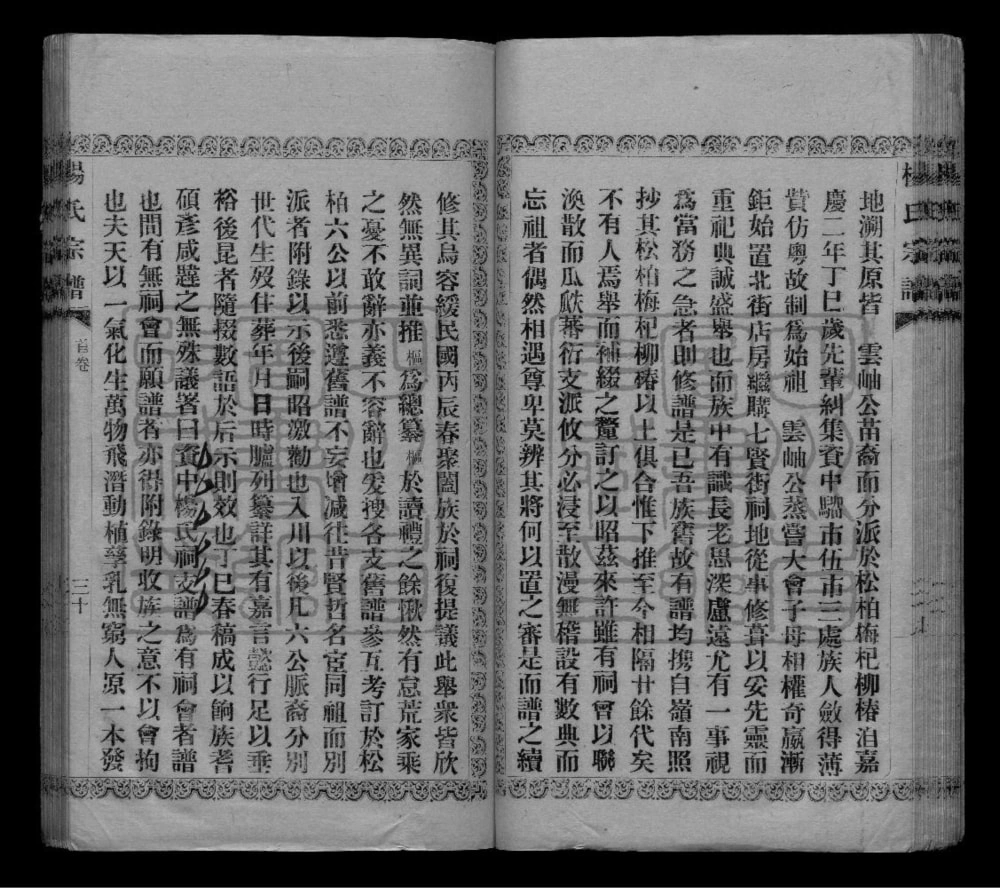 楊氏宗譜
地溯其原皆　雲岫公苗裔而分派於松柏梅杞柳椿洎嘉
慶二年丁巳歲先輩糾集資中驑市伍市三處族人斂得薄
貲仿粵故制爲始祖　雲岫公蒸嘗大會子母相權奇嬴漸
鉅始置北街店房繼購七賢街祠地從事修葺以妥先靈而
重祀典誠盛舉也而族中有識長老思深慮遠尤有一事視
爲當務之急者則修譜是已吾族舊故有譜均擕自嶺南照
抄其松柏梅杞柳椿以上俱合惟下推至今相隔廿餘代矣
不有人焉舉而補綴之釐訂之以昭茲來許雖有祠會以聯
渙散而瓜瓞蕃衍支派攸分必浸至散漫無稽設有數典而
忘祖者偶然相遇尊卑莫辨其將何以置之審是而譜之續
修其烏容緩民國丙辰春聚闔族於祠復提議此舉衆皆欣
然無異詞並推樞爲總纂樞於讀禮之餘愀然有怠荒家乘
之憂不敢辭亦義不容辭也发搜各支舊譜參互考訂於松
柏六公以前悉遵舊譜不妄增減往昔賢哲名宦同祖而別
派者附錄以示後嗣昭激勸也入川以後凡六公脈裔分別
世代生歿住葬年月日時臚列纂詳其有嘉言懿行足以垂
裕後昆者隨掇數語於后示則效也丁巳春稿成以餉族耆
碩彥咸韙之無殊議署曰資中楊氏祠支譜爲有祠會者譜
也間有無祠會而願譜者亦得附錄明收族之意不以會拘
也夫天以一氣化生萬物飛潛動植孳乳無窮人原一本發
楊氏宗譜
首卷
三十